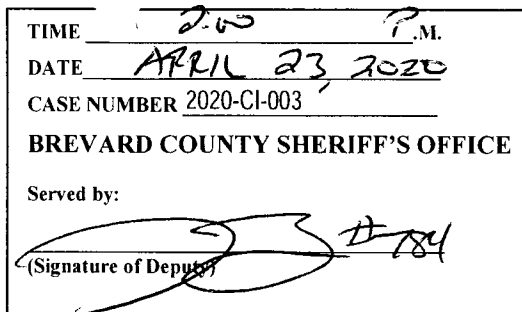 TIME 2:00 P.M.
DATE APRIL 23, 2020
CASE NUMBER 2020-CI-003
BREVARD COUNTY SHERIFF'S OFFICE
Served by:
#784
(Signature of Deputy)